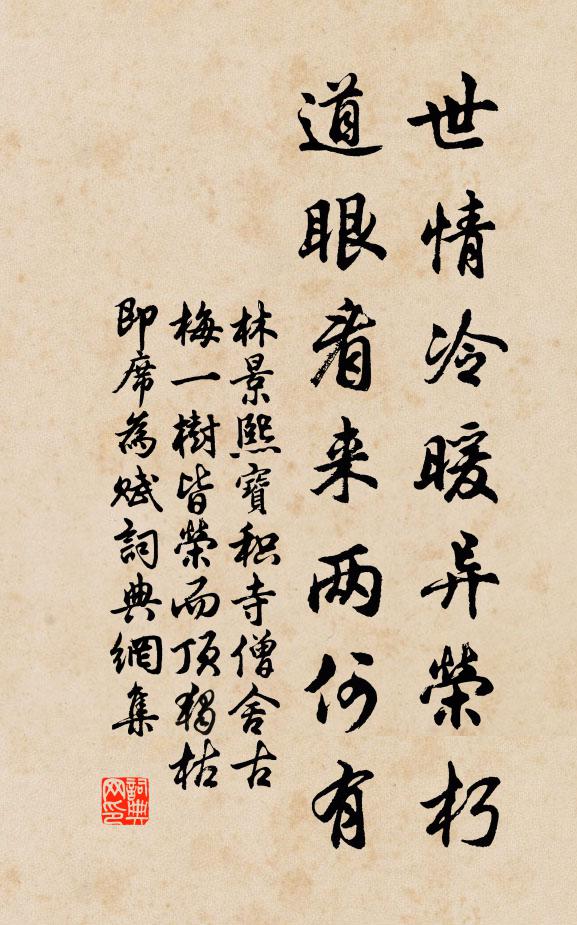 世情冷暖异榮朽
道眼看来两何有
林景熙寶积寺僧舍古
梅一樹皆榮而顶獨枯
即席為赋詞典網集
詞典
网印